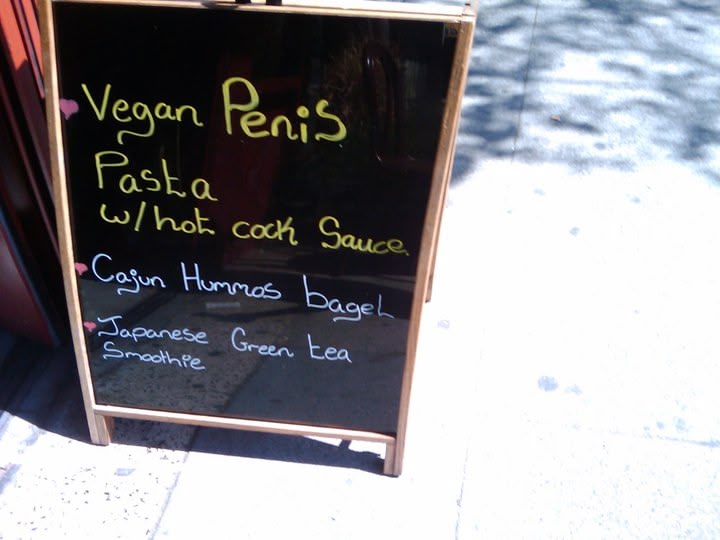 Vegan Penis
Pasta
w/hot cock Sauce
Cajun Hummos bagel
Japanese Green tea
Smoothie